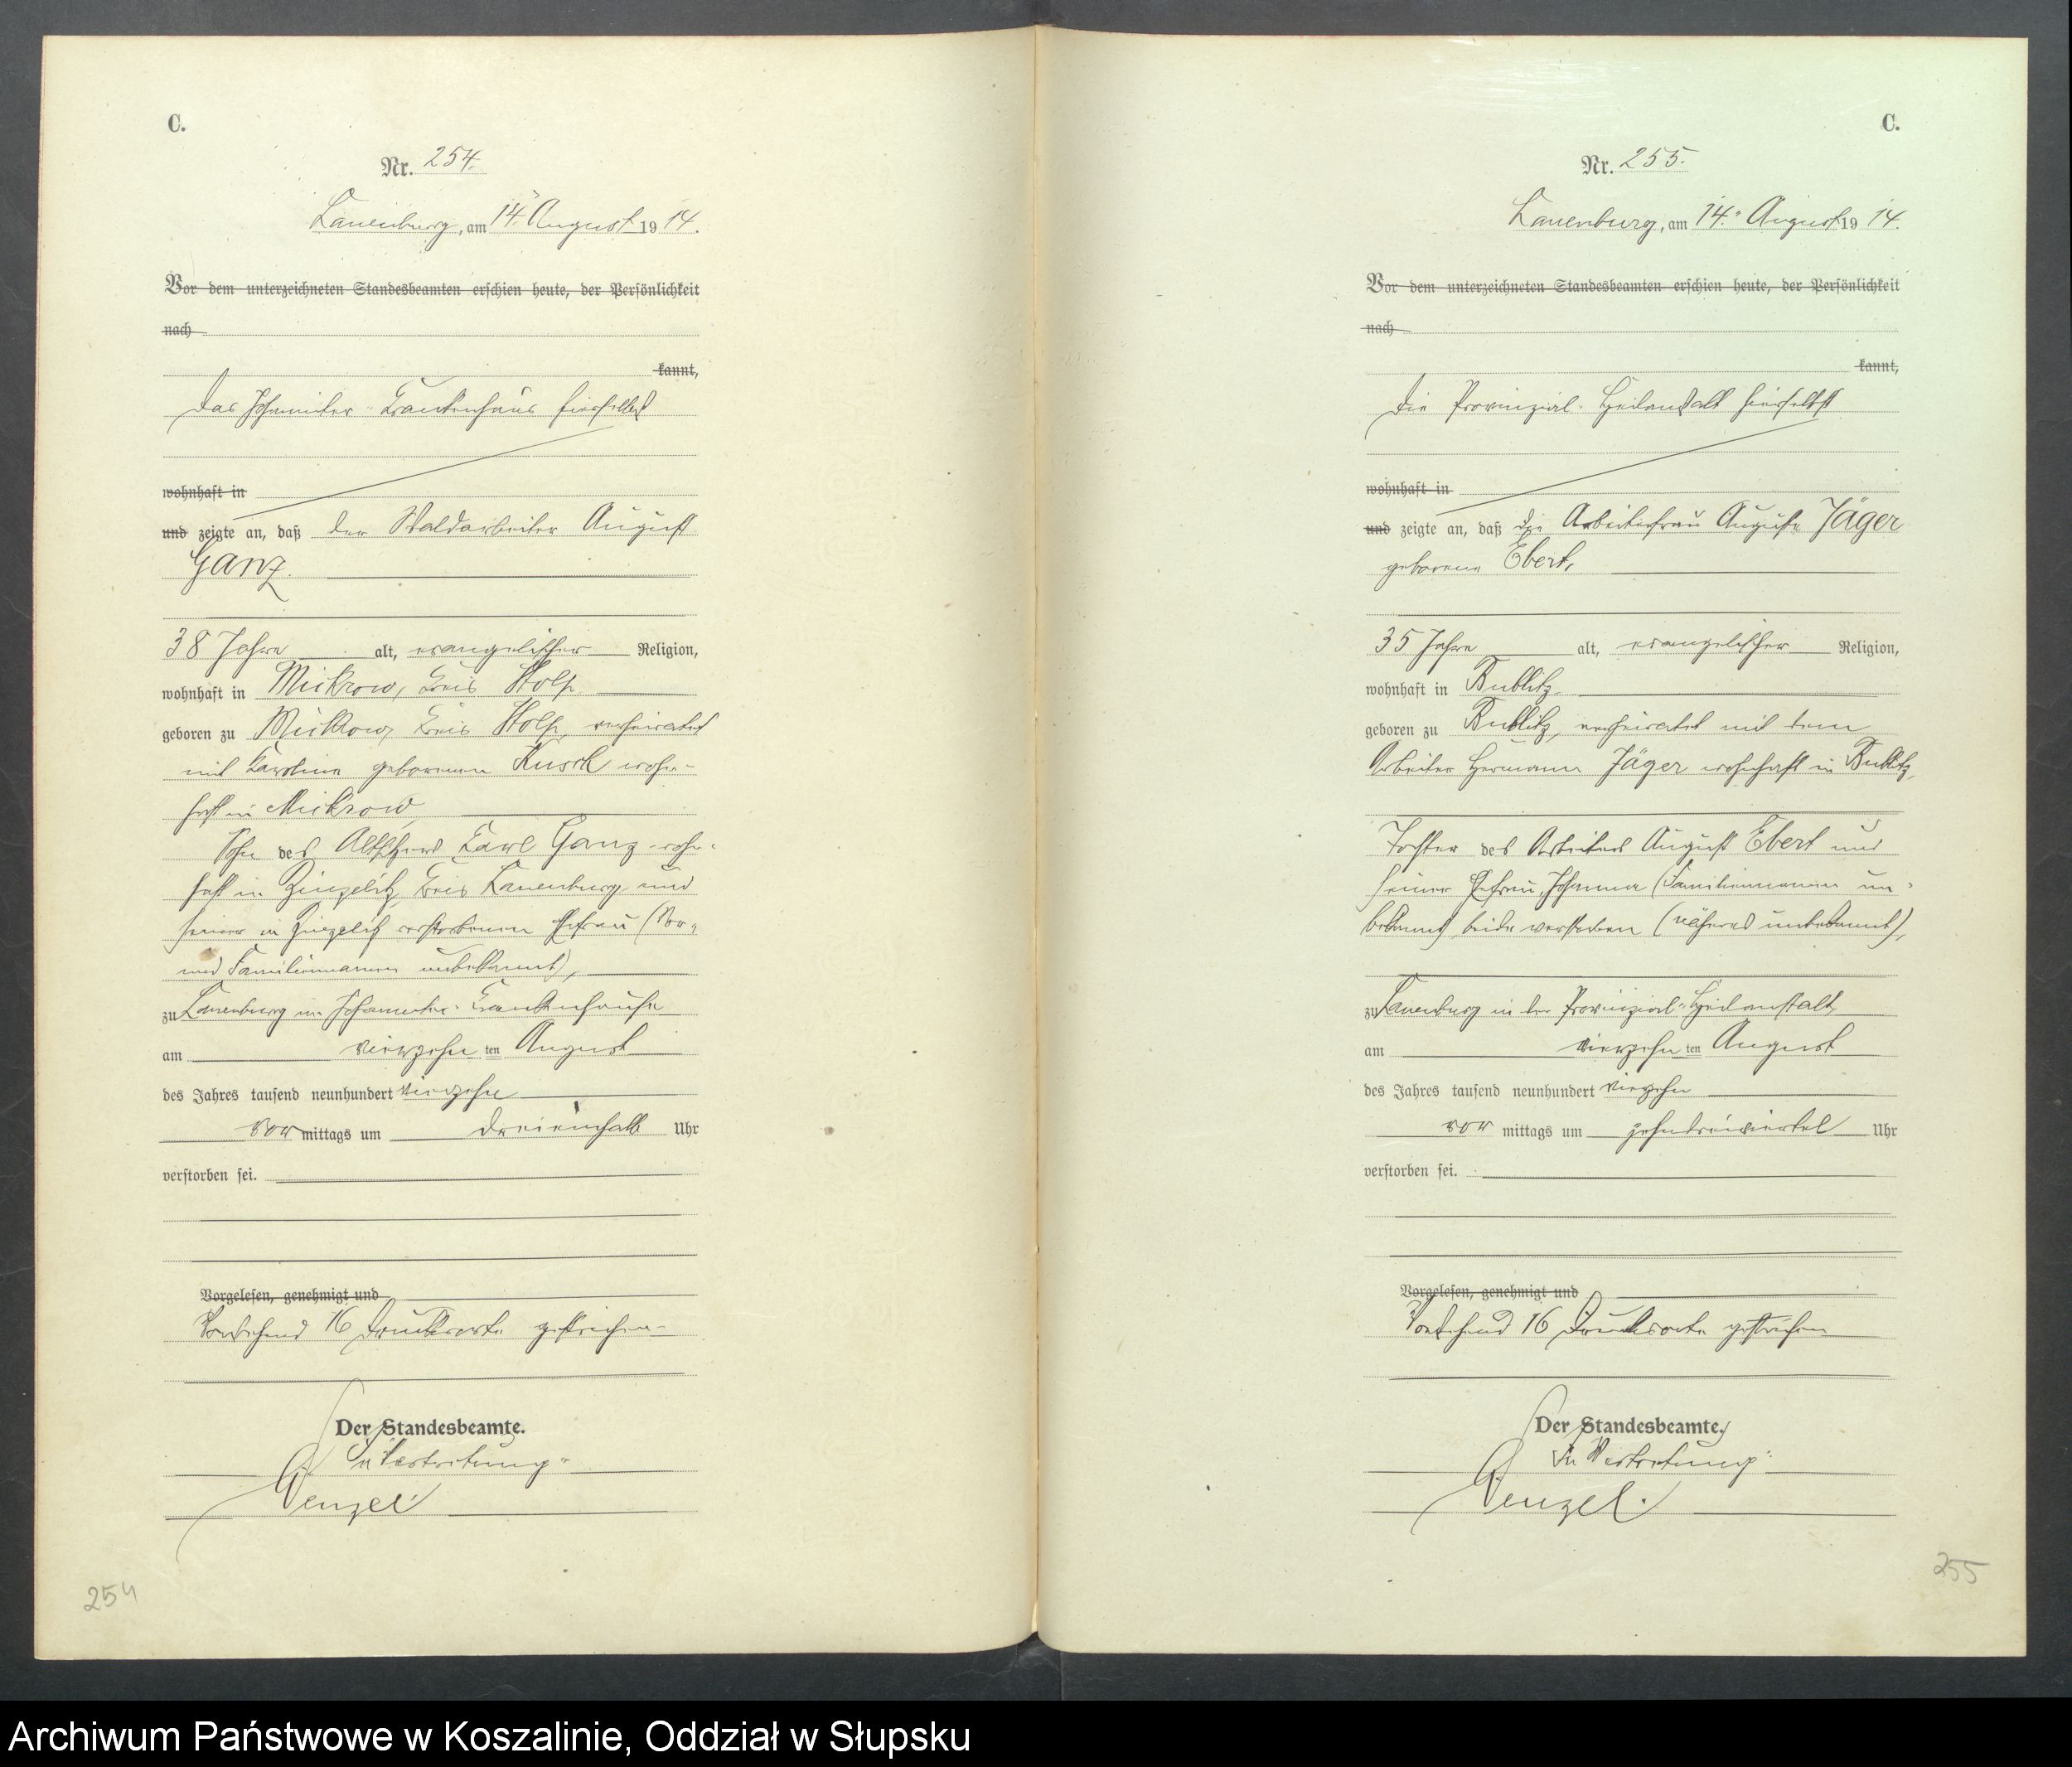 C.
Nr. 254.
Lauenburg, am 14. August 1914.
Vor dem unterzeichneten Standesbeamten erschien heute, der Persönlichkeit
nach
kannt,
das Johanniter-Krankenhaus hierselbst
wohnhaft in
und zeigte an, daß der Waldarbeiter August
Ganz.
38 Jahre alt, evangelischer Religion,
wohnhaft in Mickrow, Kreis Stolp
geboren zu Mickrow, Kreis Stolp, verheiratet
mit Karoline geborenen Kusch wohn-
haft in Mickrow
Sohn des Altsitzers Karl Ganz wohn-
haft in Zinzelitz, Kreis Lauenburg und
seiner in Zinzelitz verstorbenen Ehefrau (Vor-
und Familiennamen unbekannt),
zu Lauenburg im Johanniter-Krankenhause
am vierzehn ten August
des Jahres tausend neunhundert vierzehn
vor mittags um dreieinhalb Uhr
verstorben sei.
Vorgelesen, genehmigt und
Vorstehend 16 Druckworte gestrichen
Der Standesbeamte.
In Vertretung
Wenzel
254
C.
Nr. 255.
Lauenburg, am 14. August 1914.
Vor dem unterzeichneten Standesbeamten erschien heute, der Persönlichkeit
nach
kannt,
die Provinzial-Heilanstalt hierselbst
wohnhaft in
und zeigte an, daß die Arbeiterfrau Auguste Jäger
geborene Ebert,
35 Jahre alt, evangelischer Religion,
wohnhaft in Bublitz
geboren zu Bublitz, verheiratet mit dem
Arbeiter Hermann Jäger wohnhaft in Bublitz,
Tochter des Arbeiters August Ebert und
seiner Ehefrau, Johanna (Familiennamen un-
bekannt) beide verstorben (näheres unbekannt),
zu Lauenburg in der Provinzial-Heilanstalt
am vierzehn ten August
des Jahres tausend neunhundert vierzehn
vor mittags um zehndreiviertel Uhr
verstorben sei.
Vorgelesen, genehmigt und
Vorstehend 16 Druckworte gestrichen
Der Standesbeamte.
In Vertretung
Wenzel.
255
Archiwum Państwowe w Koszalinie, Oddział w Słupsku